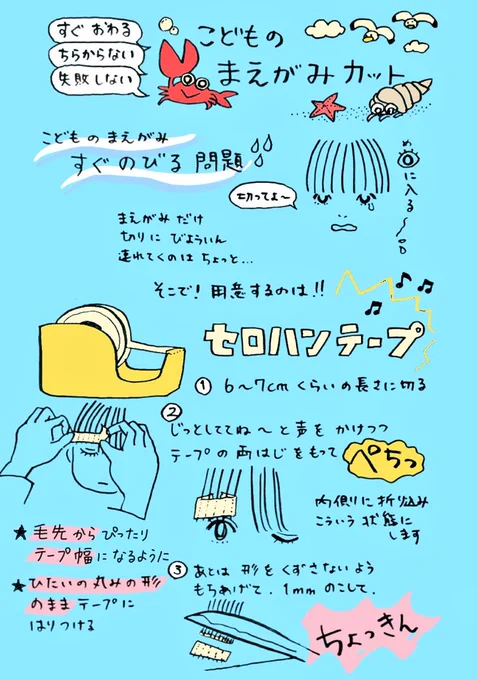 すぐ おわる
ちらからない
失敗しない
こどもの
まえがみカット
こどもの まえがみ
すぐのびる 問題
切ってよ〜
めに入る〜
まえがみ だけ
切りに びよういん
連れてくのは ちょっと…
そこで! 用意するのは!!
セロハンテープ
① 6〜7cm くらいの長さに切る
②
じっとしててね〜 と声を かけつつ
テープの両はじをもって
ぺちっ
内側に折り込み
こういう 状態に
します
★ 毛先から ぴったり
テープ幅になるように
★ ひたいの丸みの形
のまま テープに
はりつける
③ あとは 形を くずさないよう
もちあげて、1mm のこして、
ちょっきん